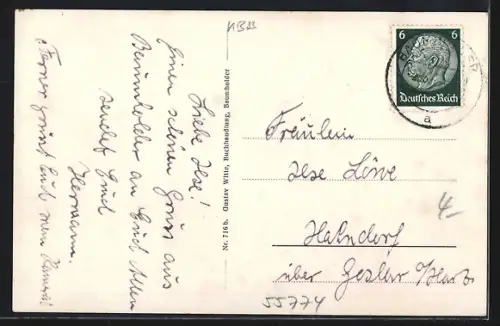 KB33
Liebe Ilse!
Einen schönen Gruss aus
Baumholder an Euch Allen
sendet Euch
Hermann.
Ferner grüsst Euch mein
Nr. 716b. Gustav Wittr, Buchhandlung, Baumholder
6 6
Deutsches Reich
a
Fräulein
Ilse Löwe
Hahndorf
über Goslar /Harz
4-
55774